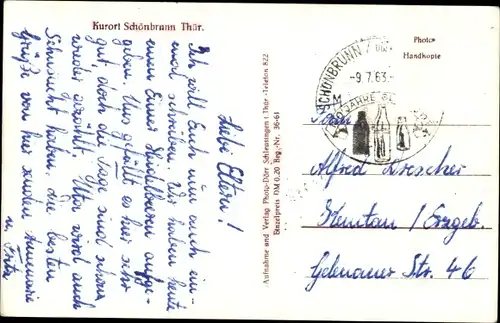 Kurort Schönbrunn Thür.
Liebe Eltern!
Ich will Euch nun auch ein-
mal schreiben. Wir haben heute
einen Eimer Heidelbeeren aufge-
geben. Uns gefällt es hier sehr
gut, doch die Tage sind schon
wieder gezählt. Ihr wird auch
Sehnsucht haben. Die besten
Grüße von hier senden Annemarie
u. Fritz
Aufnahme und Verlag Photo-Dörr Schleusingen i. Thür. - Telefon 822
Einzelpreis DM 0,20 Reg.-Nr. 36-61
Photo-
Handkopie
SCHÖNBRUNN
-9.7.63-
JAHRE
Fam.
Alfred Drescher
Venusberg / Erzgeb.
Gelenauer Str. 46